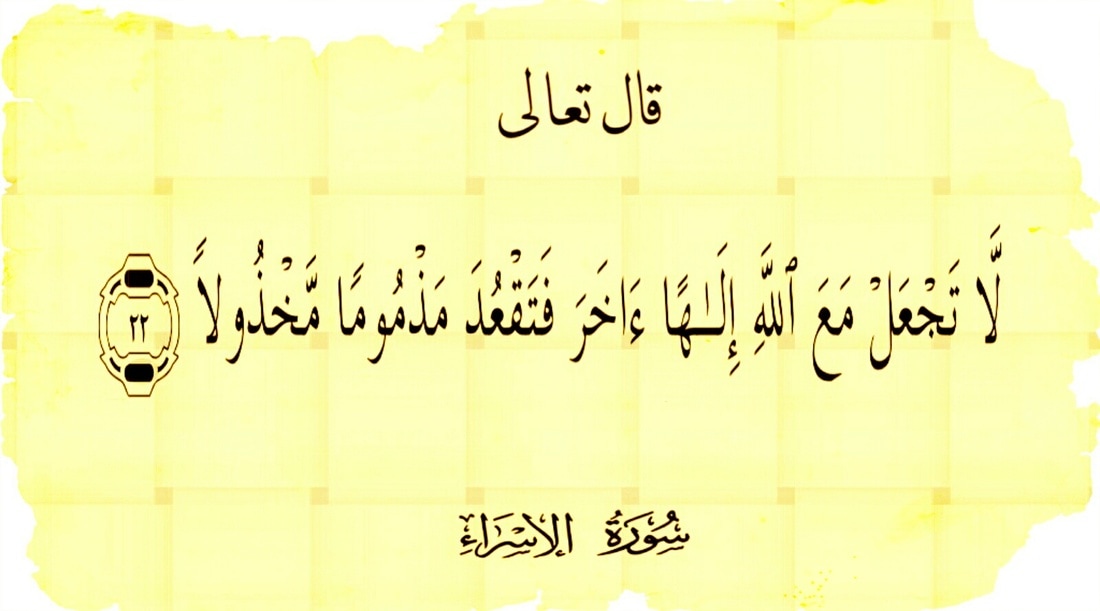 قال تعالى
لَّا تَجْعَلْ مَعَ ٱللَّهِ إِلَـٰهًا ءَاخَرَ فَتَقْعُدَ مَذْمُومًا مَّخْذُولاً ٢٢
سُورَةُ الإِسْرَاءِ